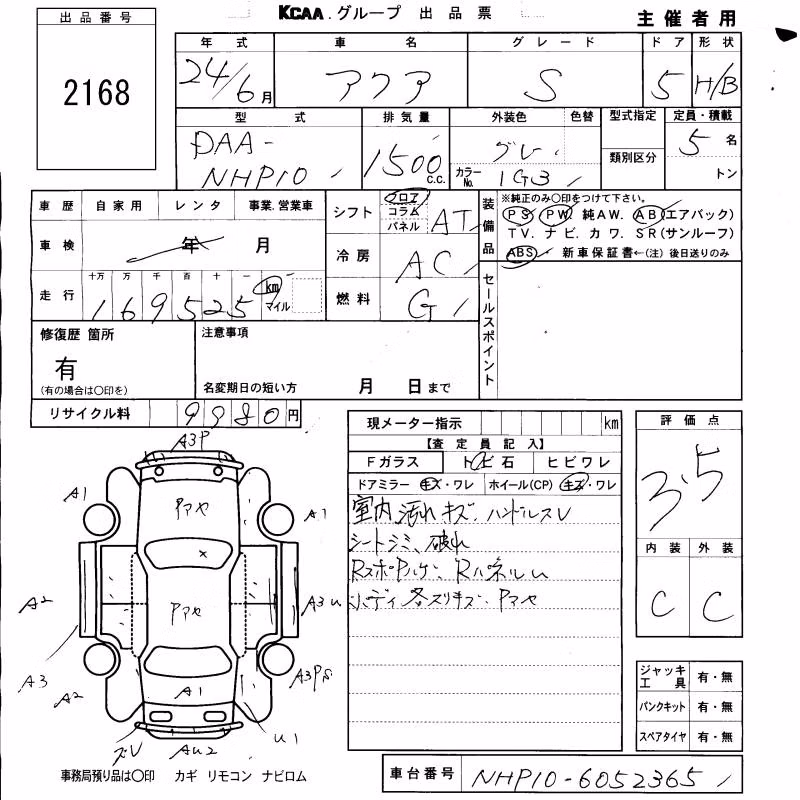 出品番号
KCAA.グループ 出品票
主催者用
2168
年式 車名 グレード ドア 形状
24/6月 アクア S 5 H/B
型式 排気量 外装色 色替 型式指定 定員・積載
DAA-NHP10 1500 C.C. グレー 類別区分 5名
カラーNo. 1G3 トン
車歴 自家用 レンタ 事業.営業車
シフト フロア コラム パネル AT
装備品
※純正のみ○印をつけて下さい。
PS PW 純AW. AB(エアバック)
TV. ナビ. カワ. SR(サンルーフ)
ABS 新車保証書←(注)後日送りのみ
車検 年 月
冷房 AC
走行 十万 万 千 百 十 一 km マイル
169525
燃料 G
セールスポイント
修復歴 箇所
有
(有の場合は○印を)
注意事項
名変期日の短い方 月 日まで
リサイクル料 9980円
現メーター指示 km
【査定員記入】
Fガラス トビ石 ヒビワレ
ドアミラー キズ・ワレ ホイール(CP) キズ・ワレ
室内汚れ キズ. ハンドルスレ
シートシミ、破れ
RスポPハゲ、RパネルU
ボディ各スリキズ. Pマヤ
評価点
3.5
内装 外装
C C
A3P
A1 Pマヤ A1
A2 Pマヤ A3U
A3 A2 A1 A3PS
AU2 U1
ジャッキ工具 有・無
パンクキット 有・無
スペアタイヤ 有・無
事務局預り品は○印 カギ リモコン ナビロム
車台番号 NHP10-6052365